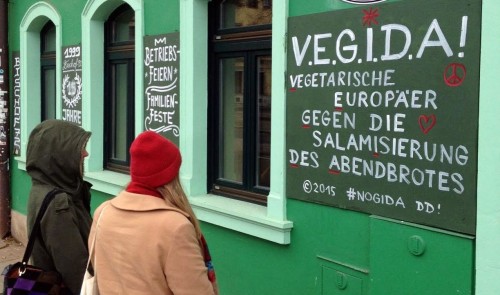 BISCHOFF
1999
25
JAHRE
BETRIEBS-
FEIERN
FAMILIEN-
FESTE
V.E.G.I.D.A!
VEGETARISCHE
EUROPÄER
GEGEN DIE
SALAMISIERUNG
DES ABENDBROTES
©2015 #NOGIDA DD!